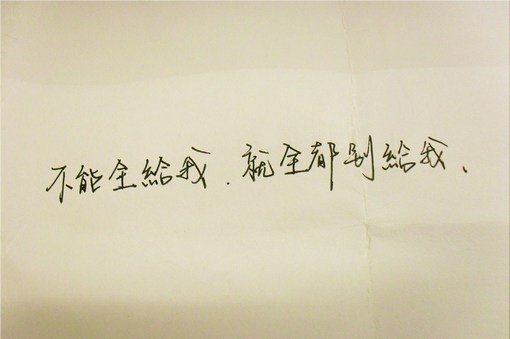 不能全給我．就全都别給我、